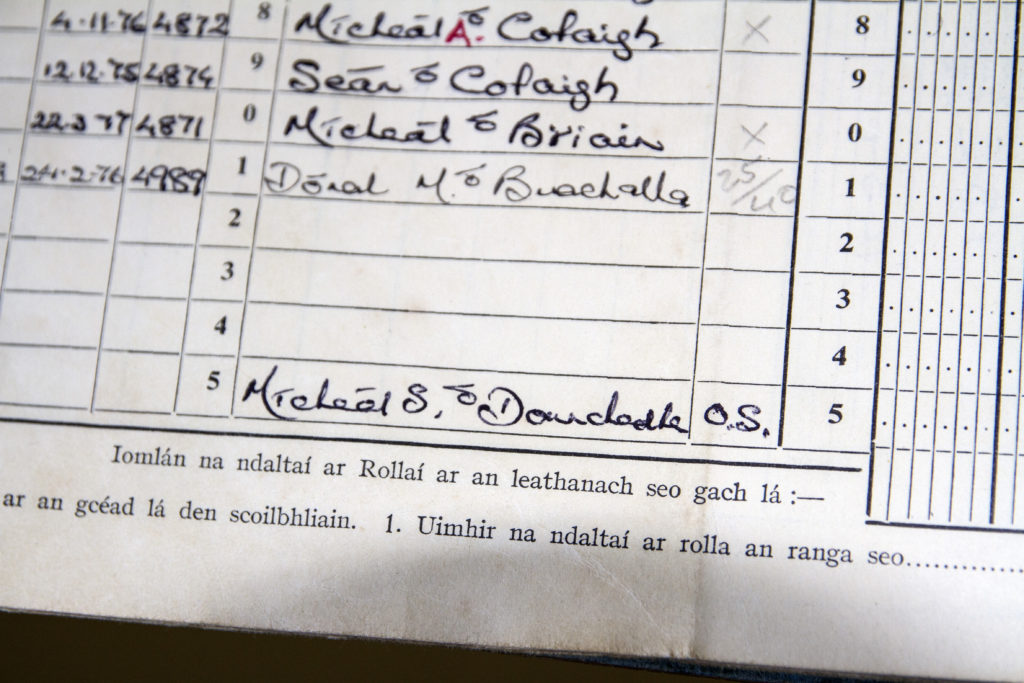 4.11.76 4872 8 Mícheál A. Ó Cofaigh X 8
12.12.75 4874 9 Seán Ó Cofaigh 9
22.3.77 4871 0 Mícheál Ó Briain X 0
24.2.76 4989 1 Dónal M. Ó Buachalla 25/40 1
2 2
3 3
4 4
5 Mícheál S. Ó Donchadha O.S. 5
Iomlán na ndaltaí ar Rollaí ar an leathanach seo gach lá :—
ar an gcéad lá den scoilbhliain. 1. Uimhir na ndaltaí ar rolla an ranga seo..............